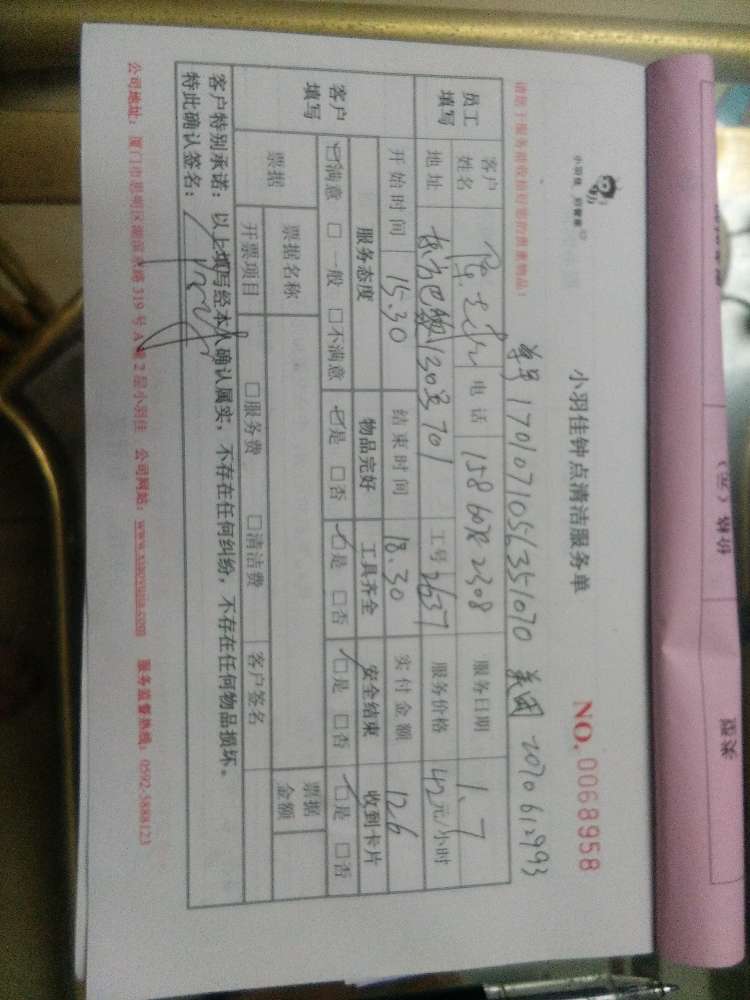 小羽佳 好管家
小羽佳钟点清洁服务单
NO. 0068958
请您于服务前收拾好您的贵重物品!
单号 1701071056351070 美团 2070612993
员工填写
客户姓名 电话 158 6078 2308 服务日期 1.7
地址 东方巴黎130号701 工号 2637 服务价格 42元/小时
开始时间 15.30 结束时间 18.30 实付金额 126
客户填写
服务态度 物品完好 工具齐全 安全结束 收到卡片
☑满意 □一般 □不满意 ☑是 □否 ☑是 □否 ☑是 □否 ☑是 □否
票据 票据名称 票据金额
开票项目 □服务费 □清洁费 客户签名
客户特别承诺:以上填写经本人确认属实,不存在任何纠纷,不存在任何物品损坏。
特此确认签名:
公司地址:厦门市思明区湖滨东路319号A 2层小羽佳 公司网站:www.xiaoyujia.com 服务监督热线:0592-5888123